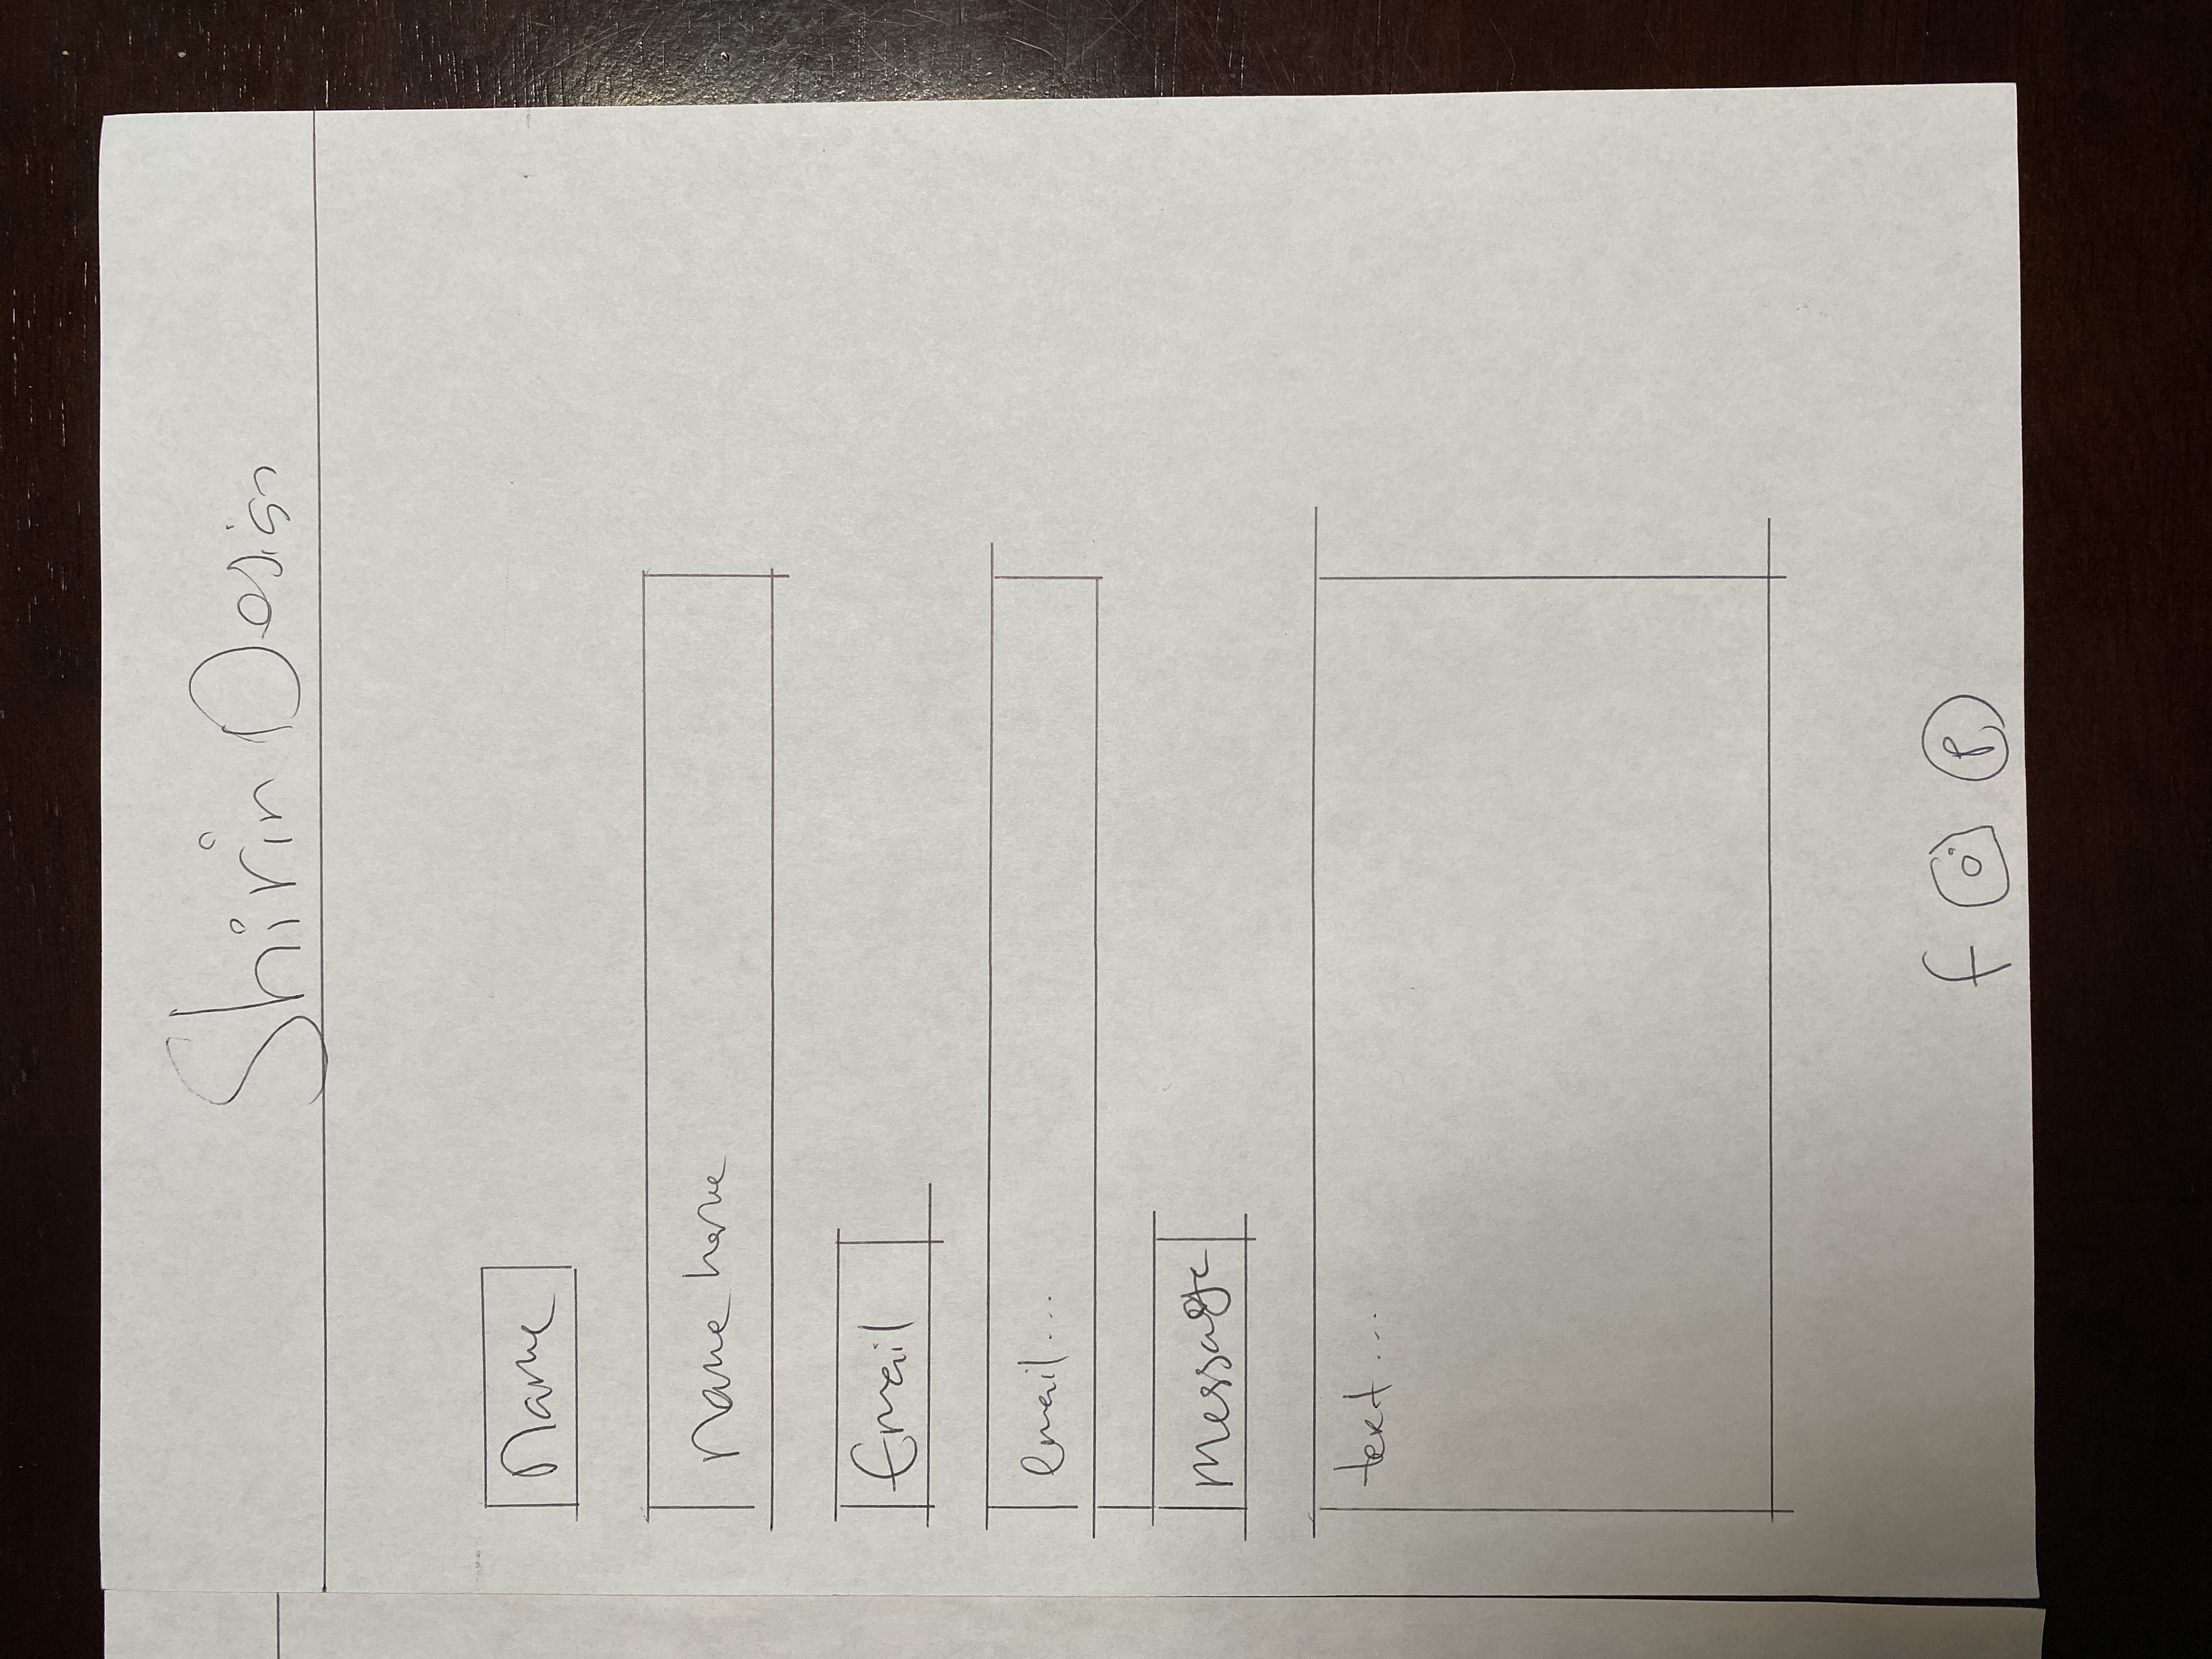 Shirin Design
Name
name here
Email
email...
Message
text...
f
P